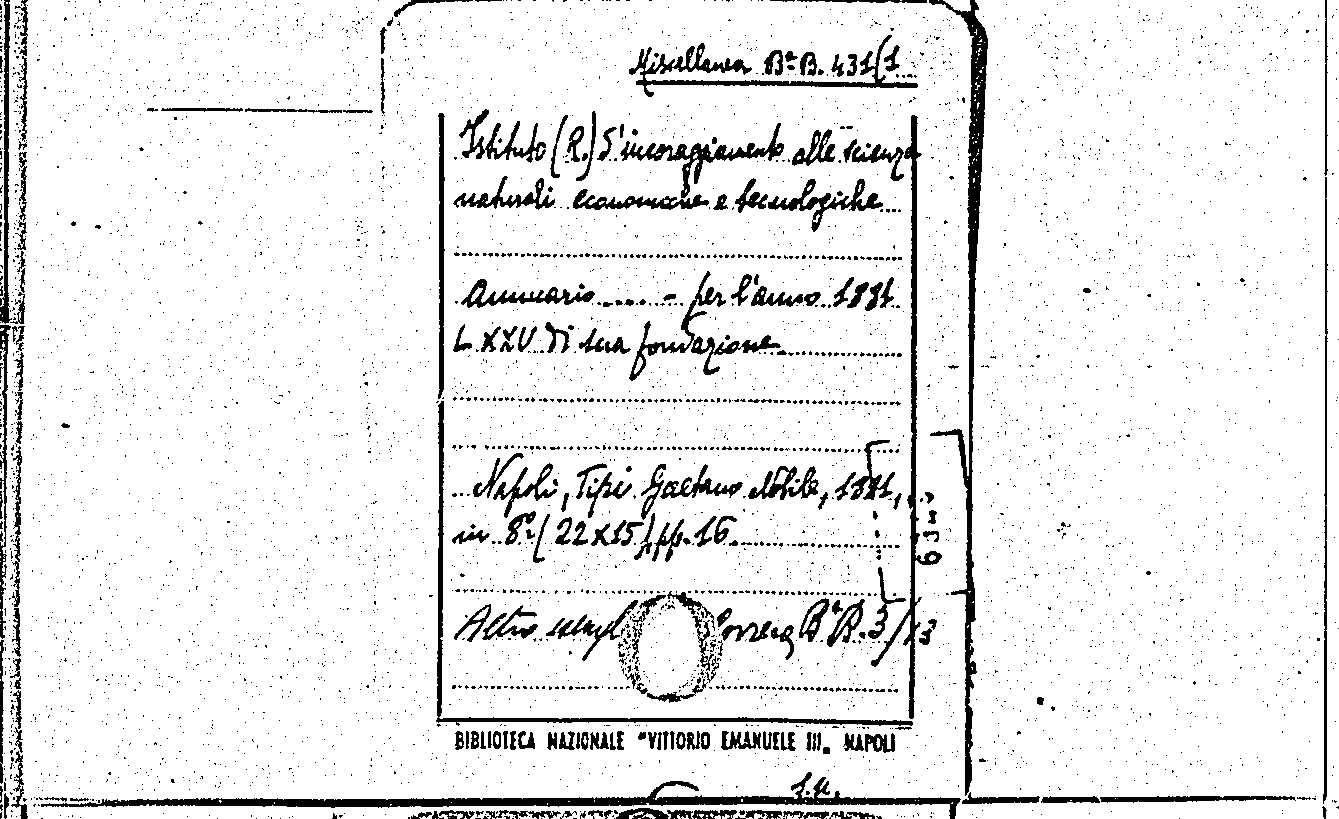 Miscellanea Bª B. 431(1
Istituto (R.) d'incoraggiamento alle scienze
naturali economiche e tecnologiche
Annuario .... - per l'anno 1881
LXXV di sua fondazione
Napoli, Tipi Gaetano Nobile, 1881,
in 8º (22x15) pp. 16.
Altro Bª B. 3/13
BIBLIOTECA NAZIONALE "VITTORIO EMANUELE III„ NAPOLI